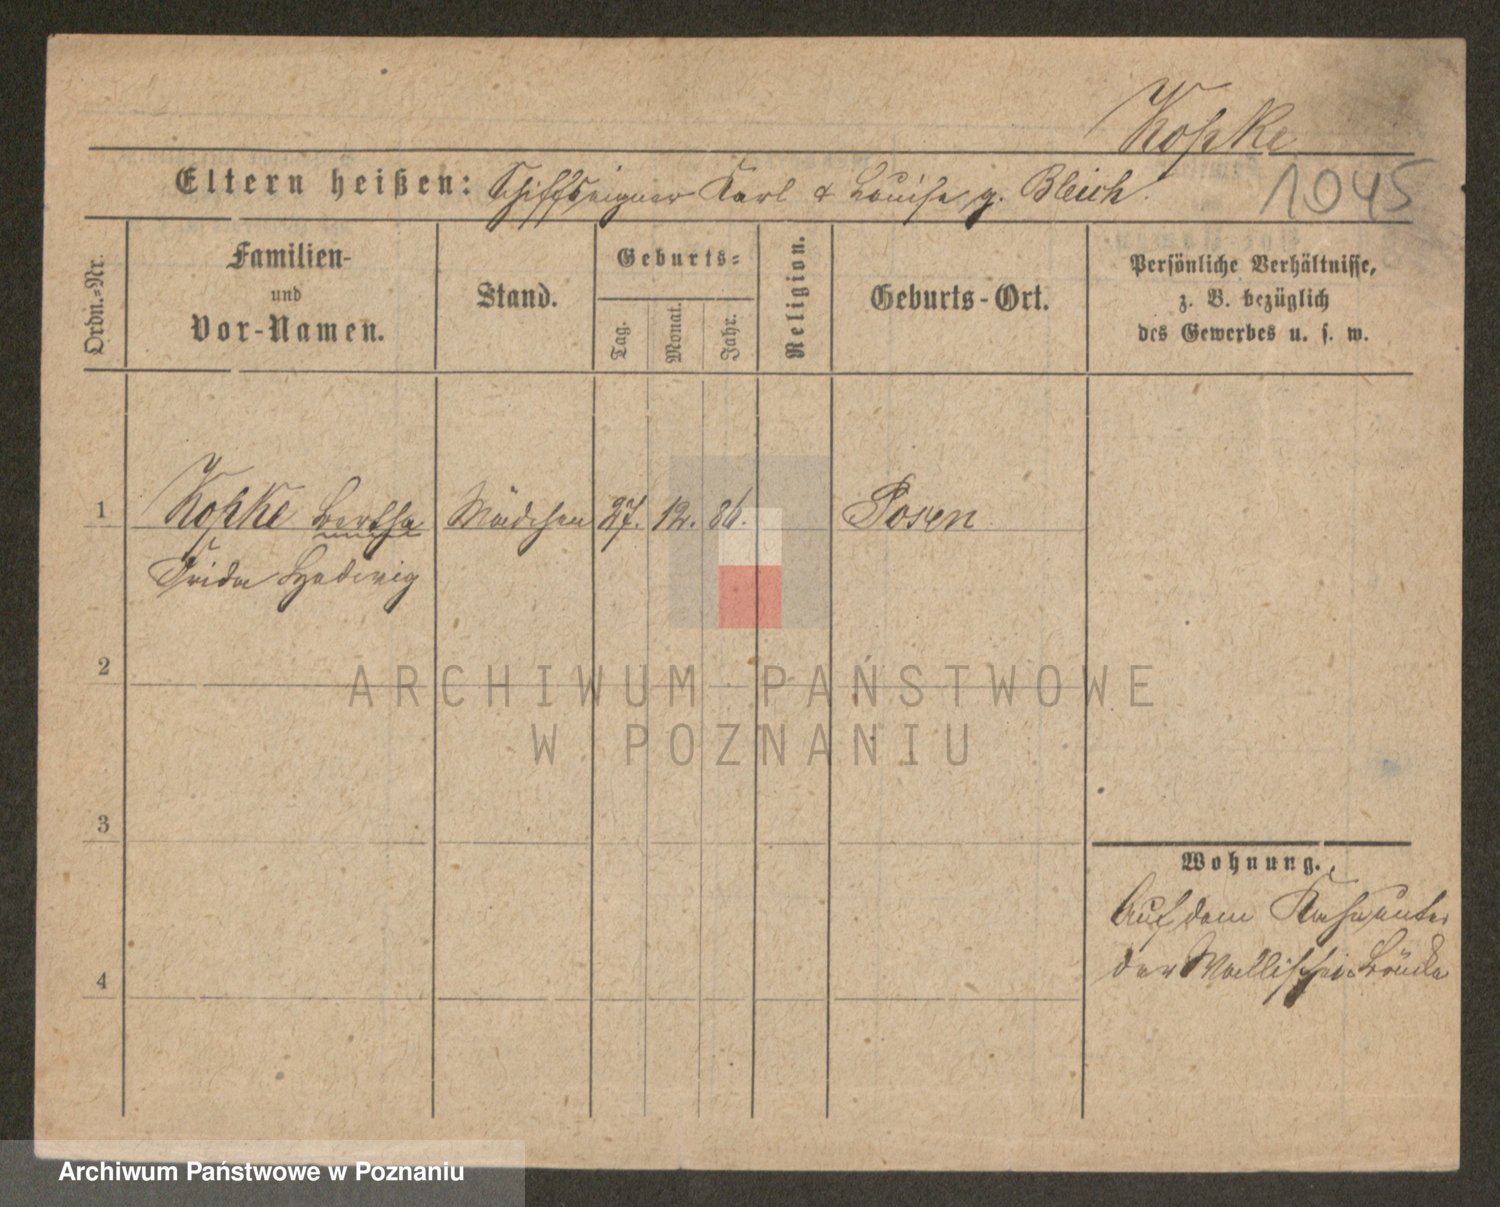 Kopke
Eltern heißen: Schiffseigner Karl & Louise g. Bleich.
1045
Ordn.-Nr.
Familien-
und
Vor-Namen.
Stand.
Geburts-
Tag.
Monat.
Jahr.
Religion.
Geburts-Ort.
Persönliche Verhältnisse,
z. B. bezüglich
des Gewerbes u. s. w.
1 Kopke Bertha Mädchen 27. 12. 86. Posen
Frida Hedwig
2
ARCHIWUM PAŃSTWOWE
W POZNANIU
3
Wohnung.
Auf dem Kahn unter
der Wallischei Brücke
4
Archiwum Państwowe w Poznaniu